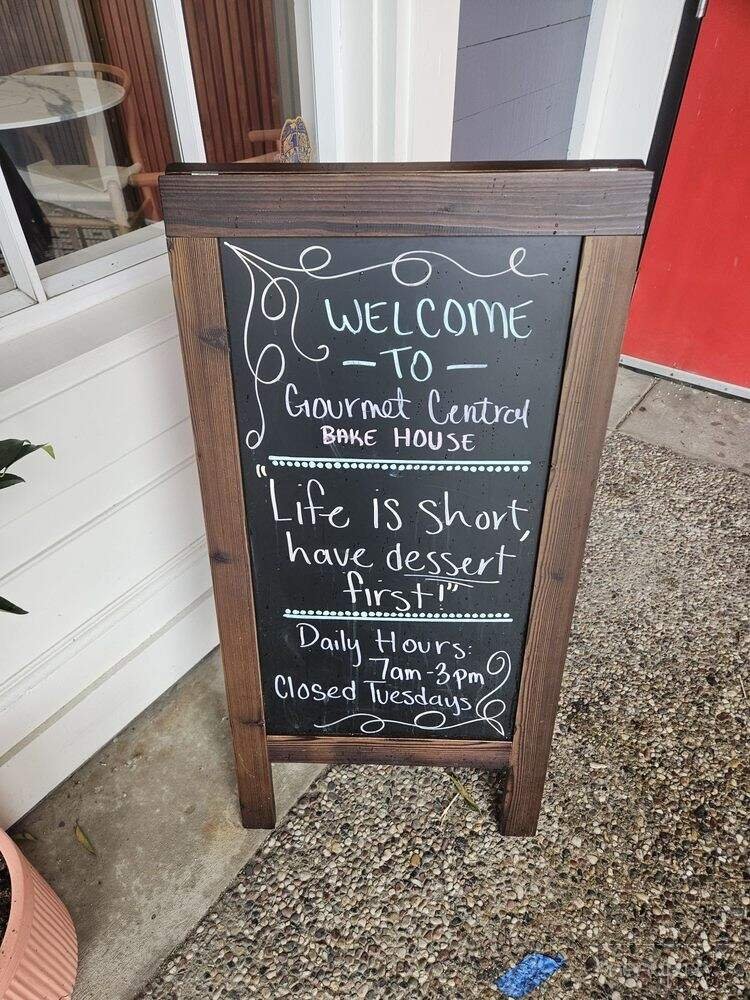 WELCOME
- TO -
Gourmet Central
BAKE HOUSE
"Life is short,
have dessert
first!"
Daily Hours:
7am-3pm
Closed Tuesdays